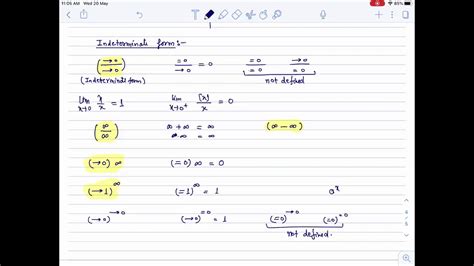 11:05 AM Wed 20 May
85%
Indeterminate forms:-
(→0 / →0) =0 / →0 = 0 =0 / =0 →0 / =0
(Indeterminate form) not defined
lim x→0 x/x = 1 lim x→0⁺ [x]/x = 0
(∞/∞) ∞ + ∞ = ∞ (∞ - ∞)
∞ · ∞ = ∞
(→0) ∞ (=0) ∞ = 0
(→1)^∞ (=1)^∞ 0^x
(→0)^→0 (→0)^=0 = 1 (=0)^→0 (=0)^=0
not defined.